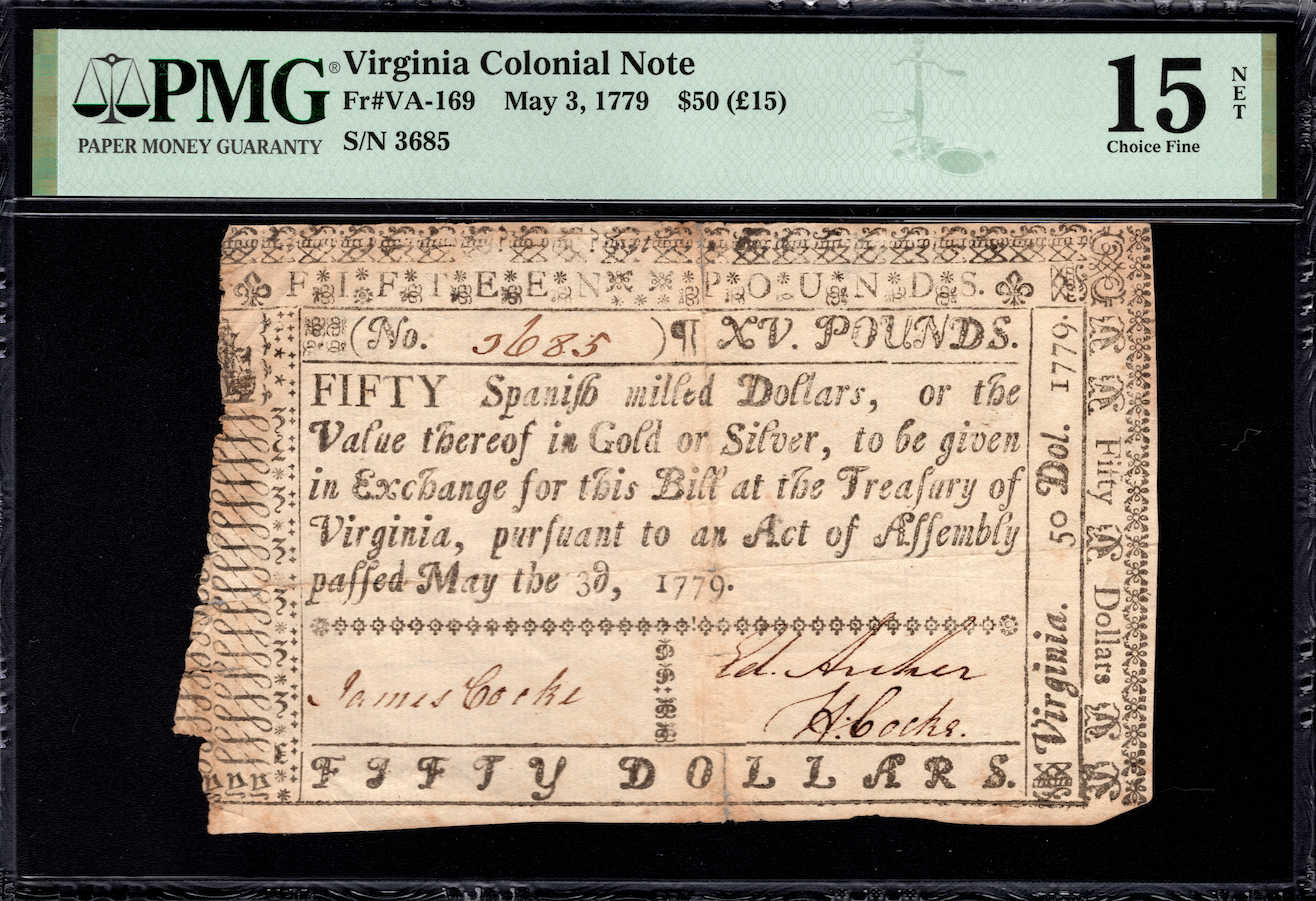 PMG®
PAPER MONEY GUARANTY
Virginia Colonial Note
Fr#VA-169 May 3, 1779 $50 (£15)
S/N 3685
15 NET
Choice Fine
FIFTEEN POUNDS.
(No. 3685) ¶ XV. POUNDS.
FIFTY Spaniſh milled Dollars, or the
Value thereof in Gold or Silver, to be given
in Exchange for this Bill at the Treaſury of
Virginia, purſuant to an Act of Aſſembly
paſſed May the 3d, 1779.
James Cocke
Ed. Archer
H: Cocke.
FIFTY DOLLARS.
Virginia. 50 Dol. 1779.
Fifty Dollars